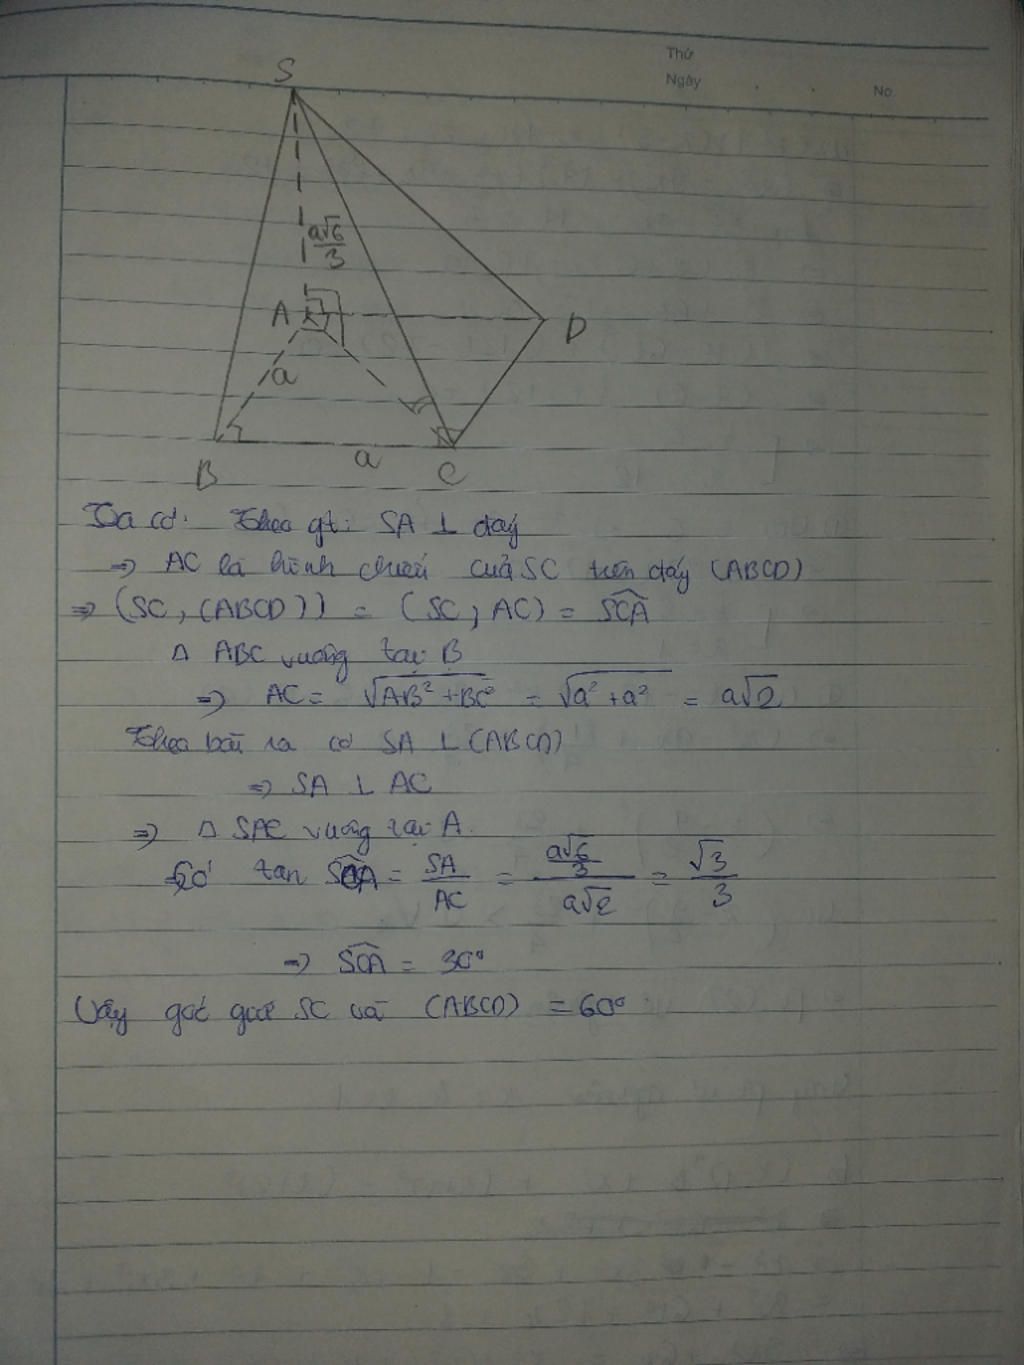 Thứ
Ngày
No.
S
a√6/3
A
D
a
B
a
C
Ta có: Theo gt: SA ⊥ đáy
=> AC là hình chiếu của SC trên đáy (ABCD)
=> (SC, (ABCD)) = (SC; AC) = SCA
Δ ABC vuông tại B
=> AC = √(AB² + BC²) = √(a² + a²) = a√2
Theo bài ra có SA ⊥ (ABCD)
=> SA ⊥ AC
=> Δ SAC vuông tại A.
Có tan SCA = SA/AC = (a√6/3)/(a√2) = √3/3
=> SCA = 30°
Vậy góc giữa SC và (ABCD) = 60°